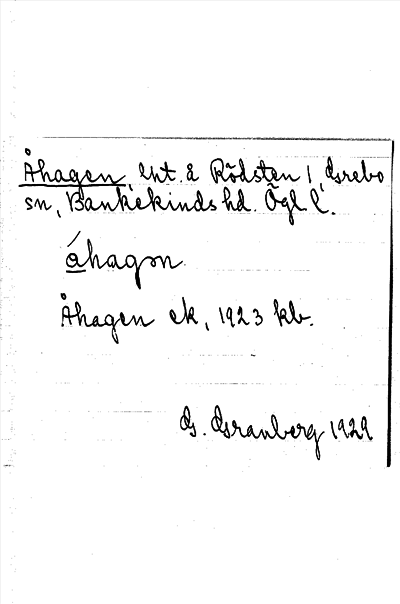 Åhagen, lht. å Rödsten 1, Grebo
sn, Bankekinds hd. Ögl. l.
áhagən
Åhagen ek, 1923 kb.
G. Granberg 1929